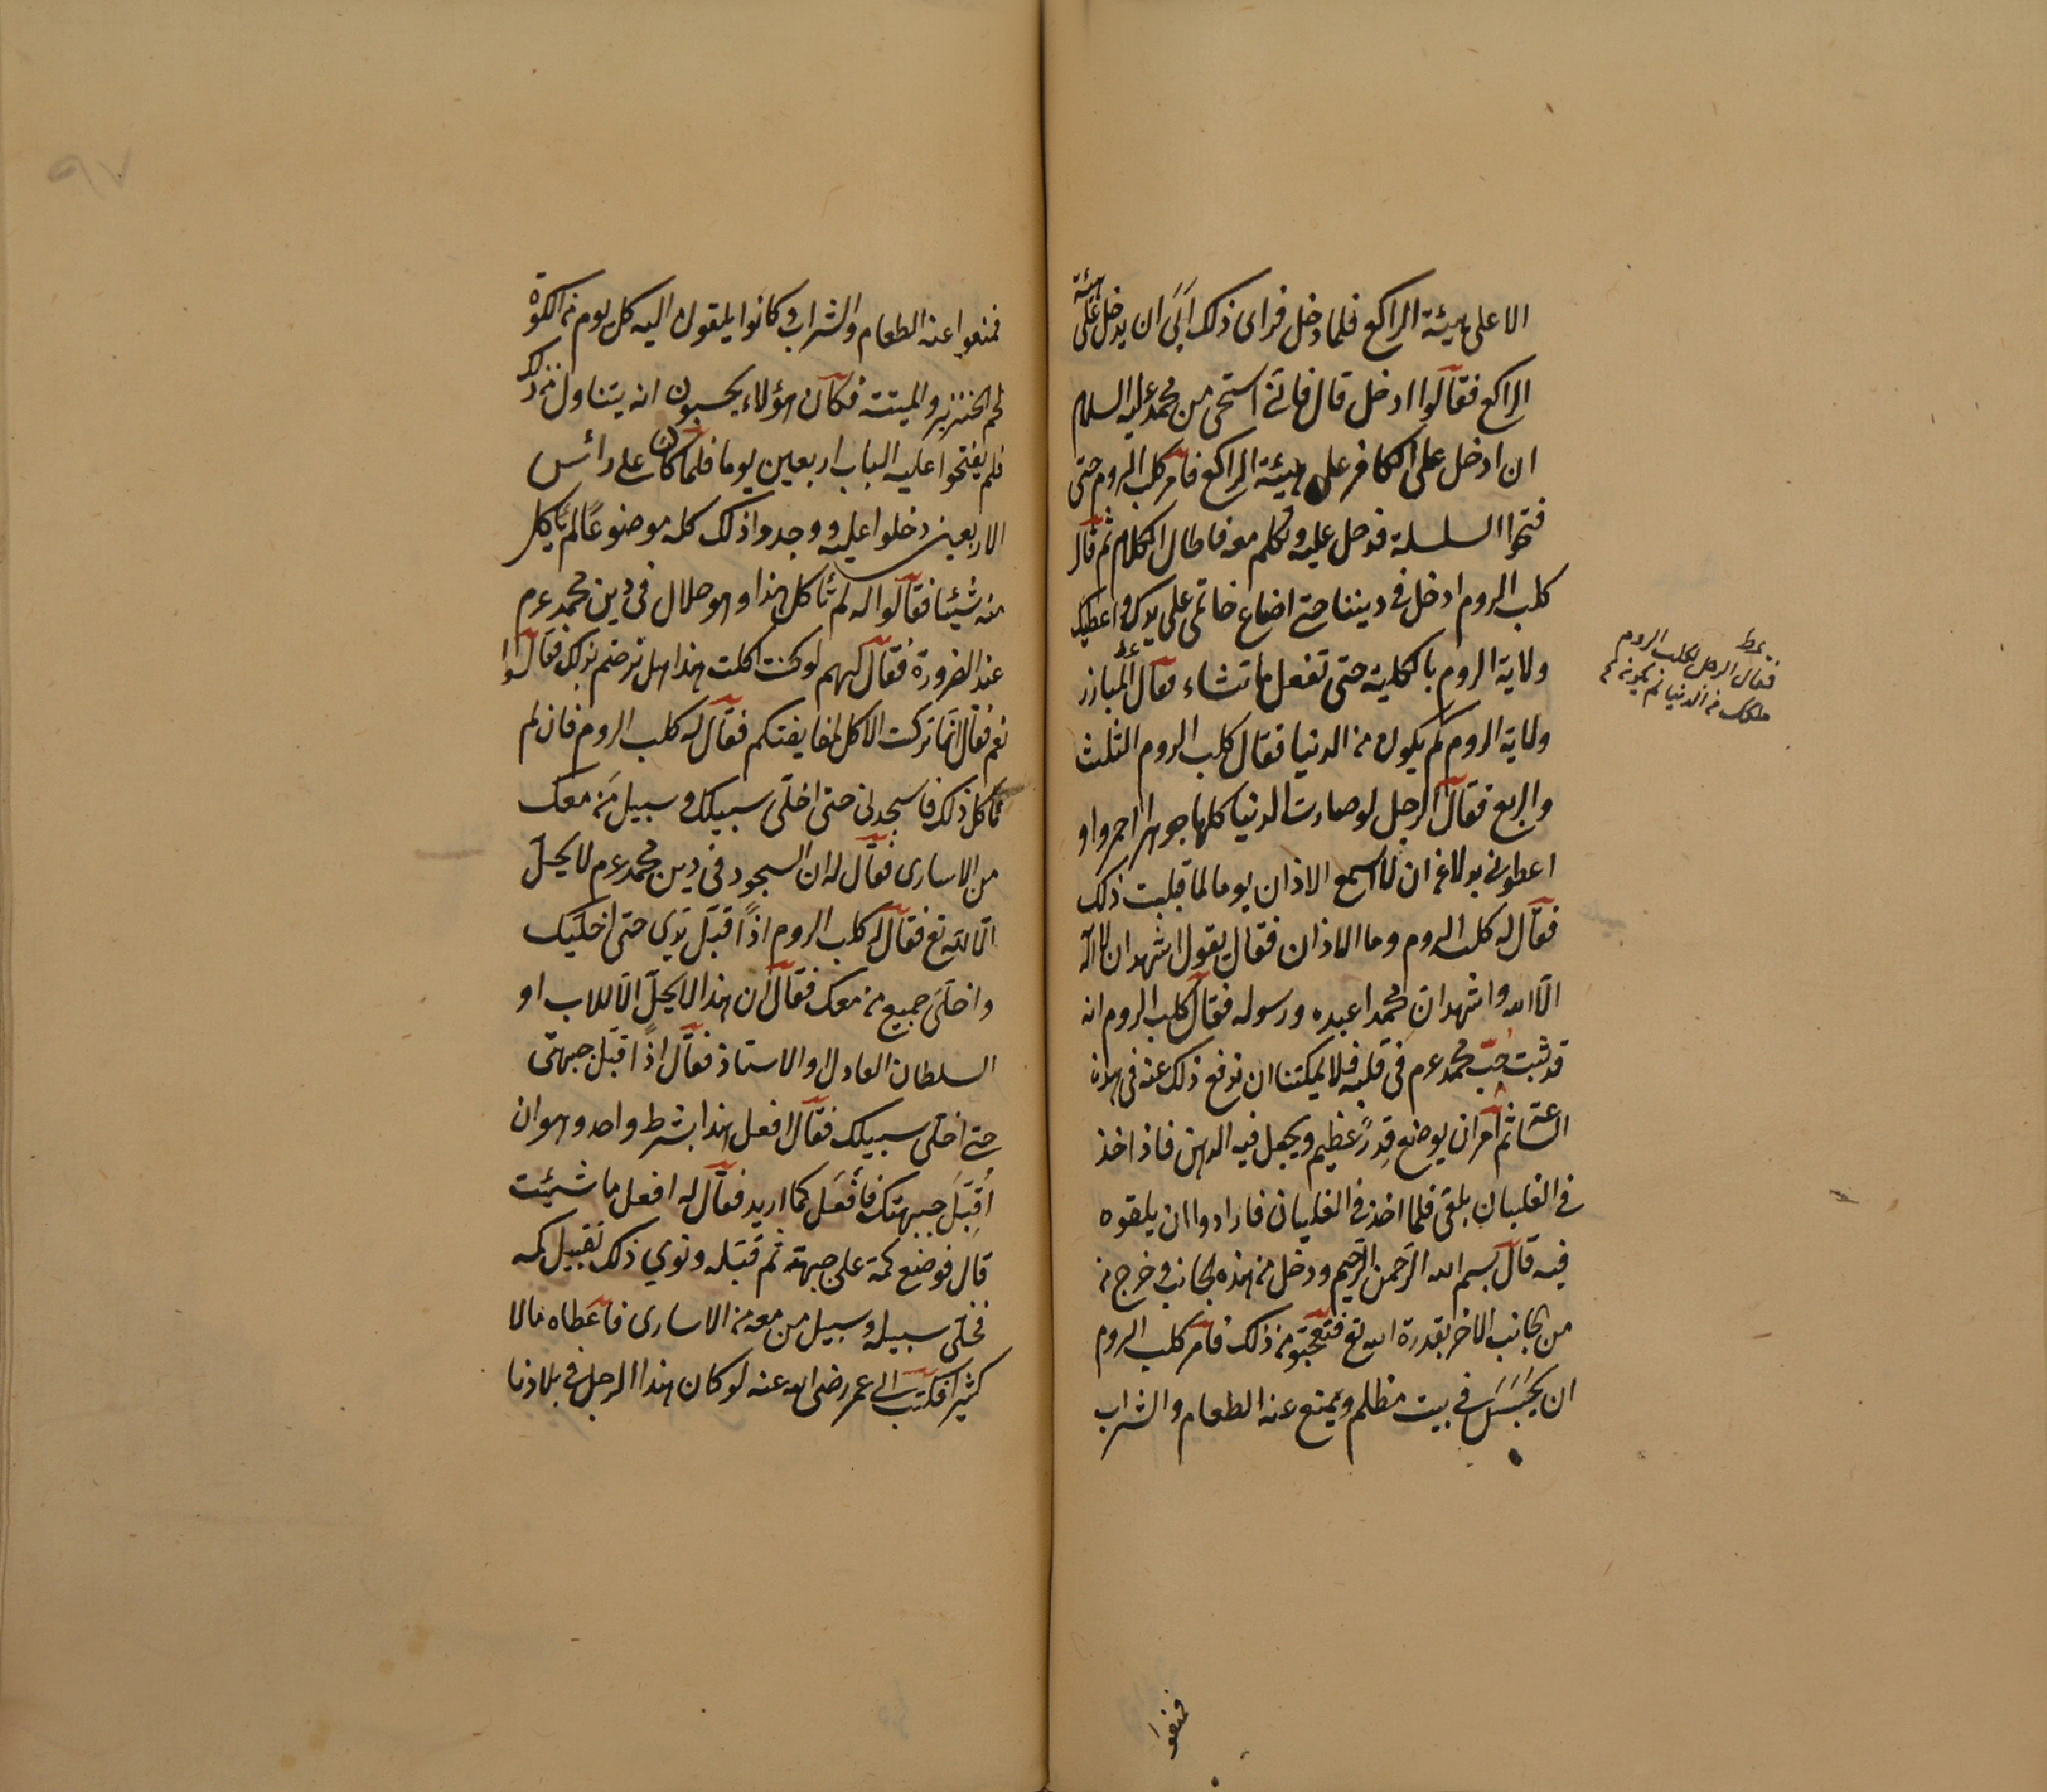 الا على هيئة الراكع فلما دخل فراى ذلك اَبَىَ ان يدخل على هيئة
الراكع فقالوا ادخل قال فانّى استحى من محمد عليه السلام
ان ادخل على الكافر على هيئة الراكع فامر كلب الروم حتى
فتحوا السلسلة فدخل عليه وتكلم معه فاطال الكلام ثم قال
كلب الروم ادخل فى ديننا حتى اضاع خاتمى على يدك واعطيك
ولاية الروم بالكلية حتى تفعل ما تشاء فقال المبارز
ولاية الروم كم يكون من الدنيا فقال كلب الروم الثلث
والربع فقال الرجل لو صارت الدنيا كلها جوهرا احمر واو
اعطونى بدلا عن ان لا اسمع الاذان يوما لما قبلت ذلك
فقال له كلب الروم وما الاذان فقال يقول اشهد ان لا اله
الّا الله واشهد ان محمدا عبده ورسوله فقال كلب الروم انه
قد ثبت حُبّ محمد عرم فى قلبه فلا يمكننا ان نرفع ذلك عنه فى هذه
الساعة ثم امر ان يوضع قِدرً عظيم ويجعل فيه الدهن فاذ اخذ
فى الغليان يلقى فلما اخذ فى الغليان فارادوا ان يلقوه
فيه قال بسم الله الرّحمن الرّحيم ودخل من هذه الجانب وخرج من
من الجانب الاخر بقدرة الله تع فتعجبوا من ذلك فامر كلب الروم
ان يحبس فى بيت مظلم ويمنع عنه الطعام والشراب
فقال الرجل لكلب الروم
ملكك من الدنيا
فمنعوا
فمنعوا عنه الطعام والشراب وكانوا يلقون اليه كل يوم من الكوة
لحم الخنزير والميتة فكان هؤلاء يحسبون انه يتناول من ذلك
فلم يفتحوا عليه الباب اربعين يوما فلما كان على رائس
الاربعين دخلوا عليه ووجدوا ذلك كله موضوعًا لم يأكل
منه شيئا فقالوا له لم تأكل هذا وهو حلال فى دين محمد عرم
عند الضرورة فقال لهم لو كنت اكلت هذا هل نرضم بذلك فقالوا
نعم فقال انما تركت الاكل لمغايضتكم فقال له كلب الروم فان لم
تأكل ذلك فاسجد لى حتى اخلّى سبيلك وسبيل مَن معك
من الاسارى فقال له ان السجود فى دين محمد عرم لا يحلّ
الّا لله تع فقال له كلب الروم اذًا قبّل يَدِى حتى اخلّيك
واخلّى جميع من معك فقال ان هذا لا يحلّ الّا للاب او
السلطان العادل او الاستاذ فقال اذًا قبّل جبهتى
حتى اخلّى سبيلك فقال لا افعل هذا بشرط واحد وهو ان
اُقبّلَ جبهتك فأفعَل كما اريد فقال له افعل ما شئت
قال فوضع كمه على جبهته ثم قبّله ونوي ذلك تقبيل كمه
فخلّى سبيله وسبيل من معه من الاسارى فاعطاه مالا
كثيرا فكتب الى عمر رضى الله عنه لو كان هذا الرجل فى بلادنا